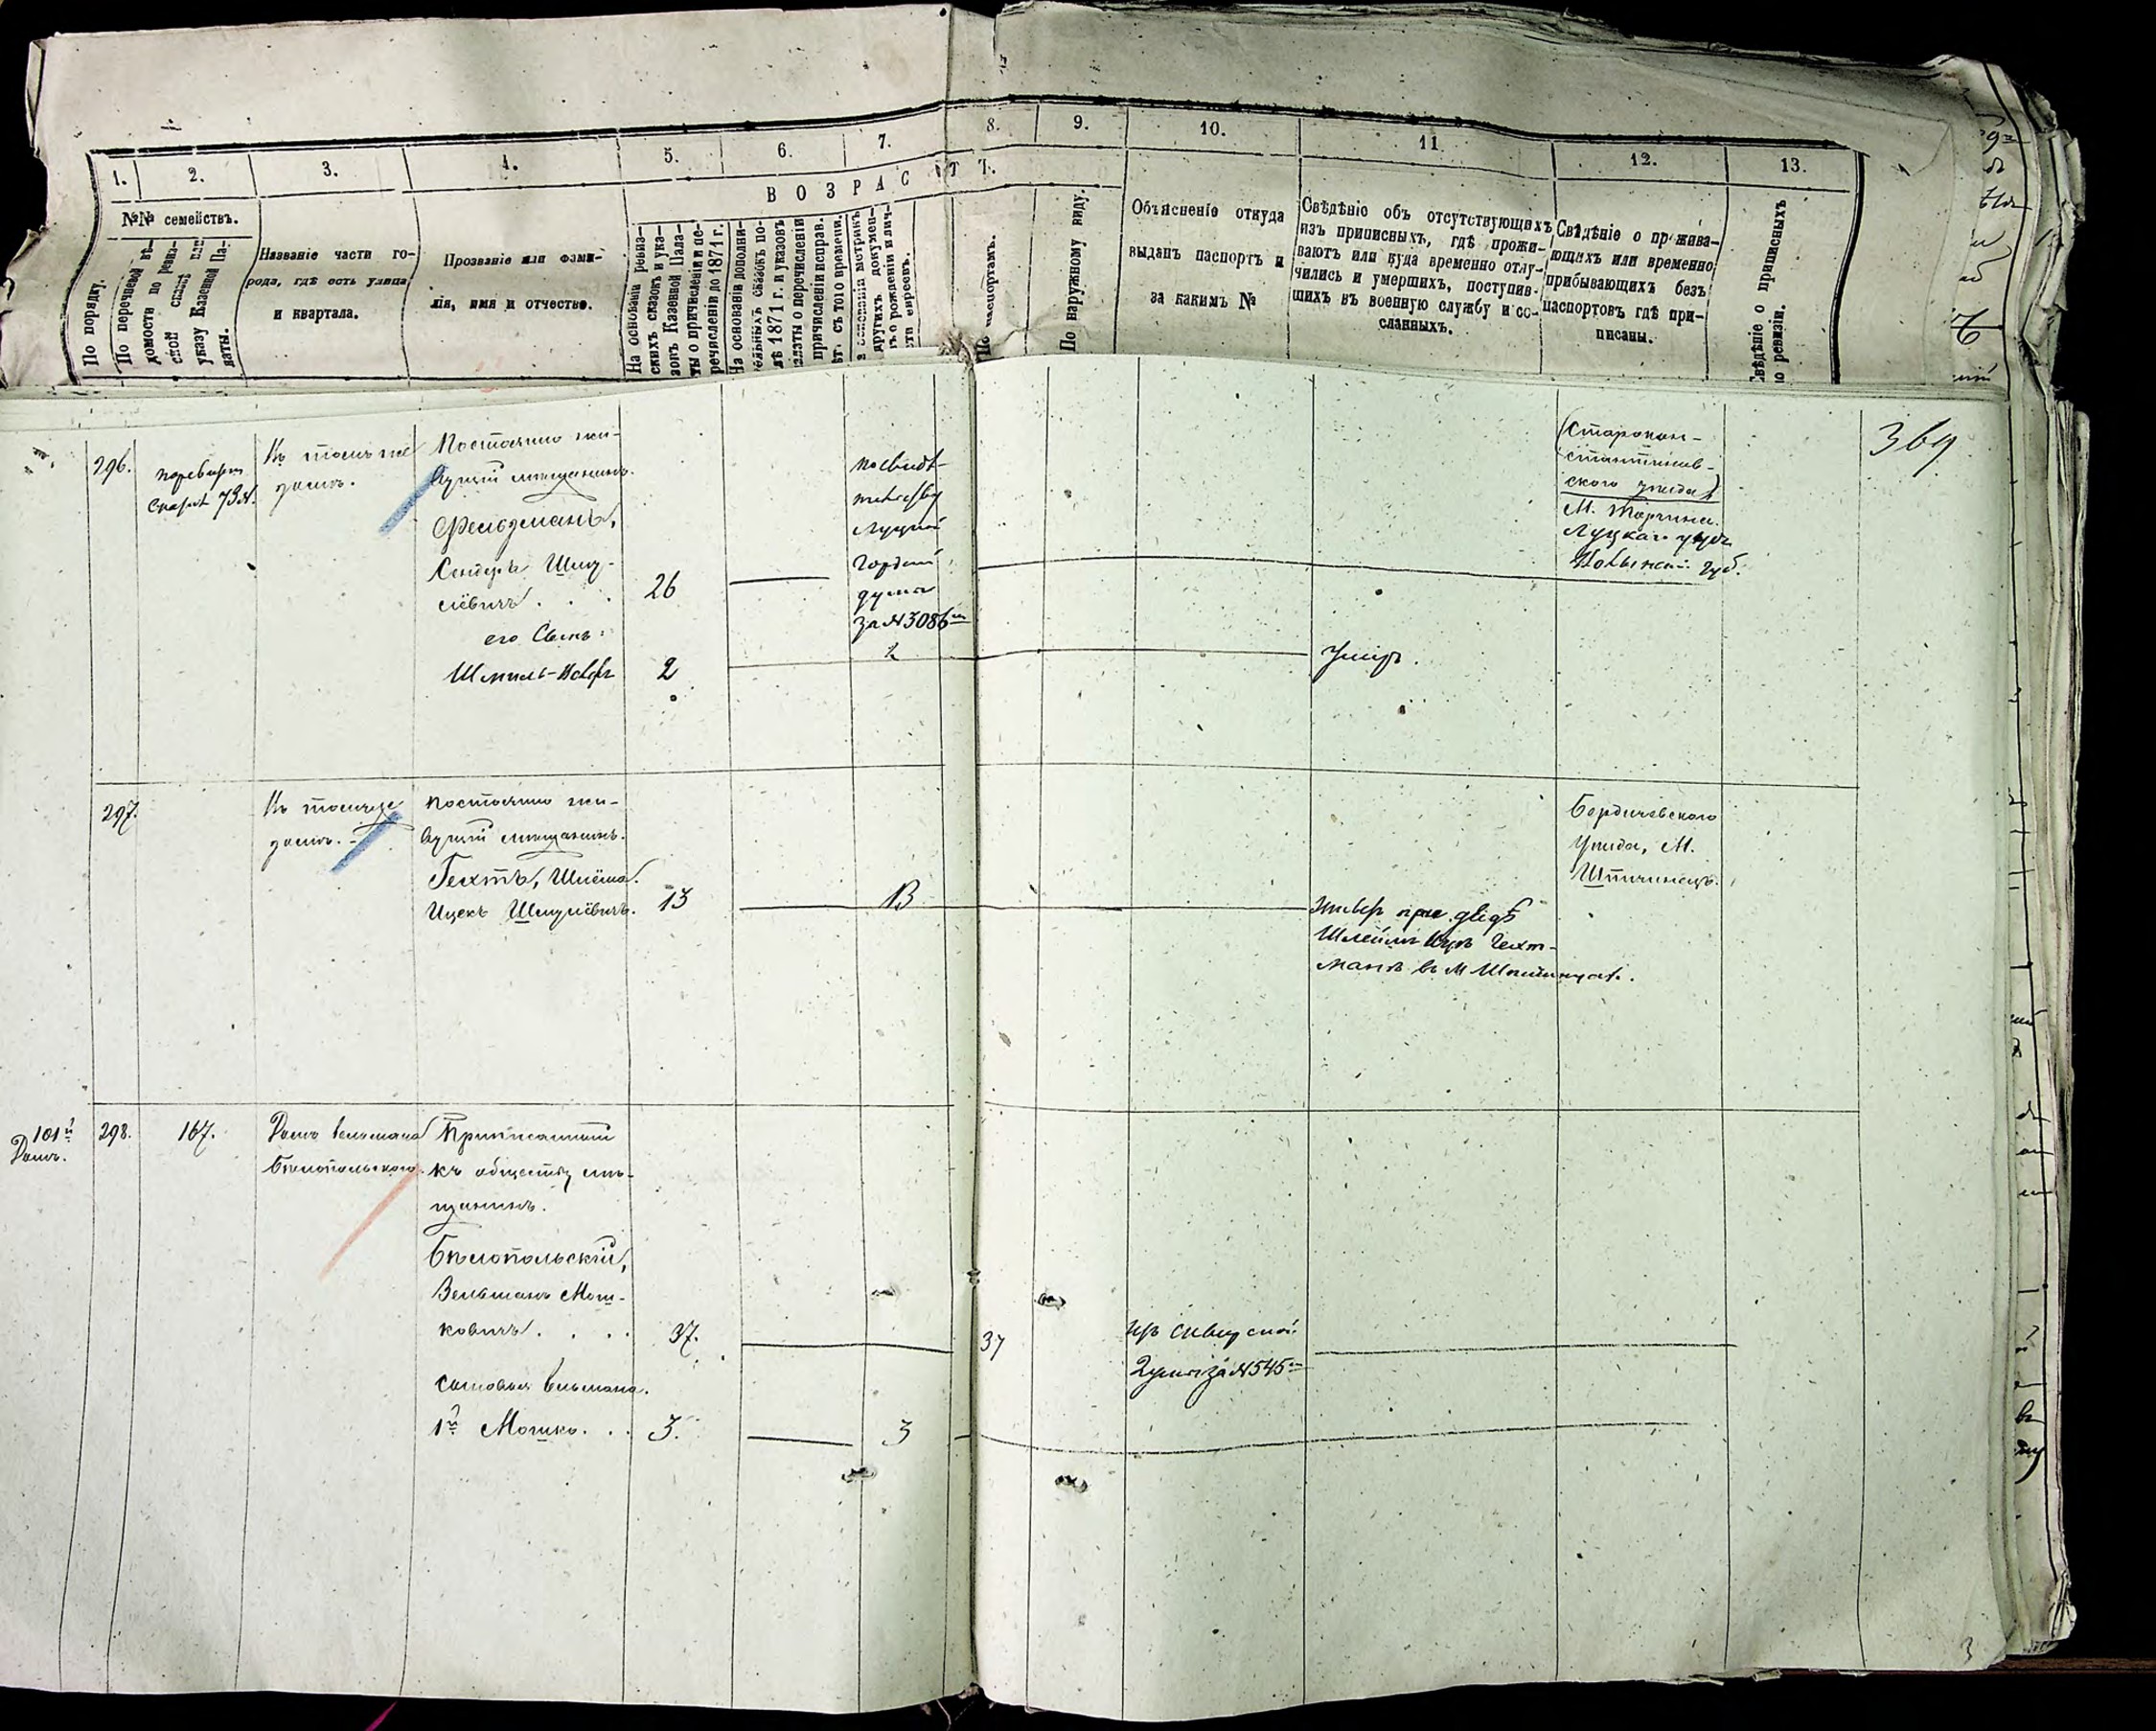 1.
2.
3.
4.
5.
6.
7.
8.
9.
10.
11.
12.
13.
ВОЗРАСТЪ.
№№ семействъ.
По порядку.
По перечневой вѣ-
домости по ревиз-
ской сказкѣ или
указу Казенной Па-
латы.
Названіе части го-
рода, гдѣ есть улица
и квартала.
Прозваніе или фами-
лія, имя и отчество.
На основаніи ревиз-
скихъ сказокъ и ука-
зовъ Казенной Пала-
ты о причисленіи и пе-
речисленіи до 1871 г.
На основаніи дополни-
тельныхъ сказокъ по-
слѣ 1871 г. и указовъ
палаты о перечисленіи
причисленіи исправ.
лѣт. съ того времени.
метрикъ
другихъ докумен-
о рожденіи и лич-
ости евреевъ.
По паспортамъ.
По наружному виду.
Объясненіе откуда
выданъ паспортъ и
за какимъ №
Свѣдѣніе объ отсутствующихъ
изъ приписныхъ, гдѣ прожи-
ваютъ или куда временно отлу-
чились и умершихъ, поступив-
шихъ въ военную службу и со-
сланныхъ.
Свѣдѣніе о прожива-
ющихъ или временно
прибывающихъ безъ
паспортовъ гдѣ при-
писаны.
Свѣдѣніе о приписныхъ
по ревизіи.
369
296.
Въ томъ же
домѣ.
Постоянно жи-
вущій мѣщанинъ.
Фельдманъ,
Сендеръ Шму-
лёвичъ . . .
26
его Сынъ:
2
2
Луцкой
думы
за №3086
Умеръ.
(Старокон-
стантинов-
ского уѣзда)
М. Торчина
Луцкаго уѣзда
Волынской Губ.
297.
Въ томъ же
домѣ.
Постоянно жи-
вущій мѣщанинъ.
Гехтъ, Шлёма
Ицекъ Шмулёвичъ.
13
13
при дядѣ
Гехт-
маномъ въ М
Бердичевского
Уѣзда, М.
101й
Домъ.
298.
167.
Домъ Вельмана
Бѣлопольского.
Приписанный
къ обществу мѣ-
щанинъ.
Бѣлопольскій,
Вельманъ Мош-
ковичъ . . . .
37.
37
изъ Сквирской
Думы за №545
Сыновья Вельмана.
1й Мошко. . .
3.
3